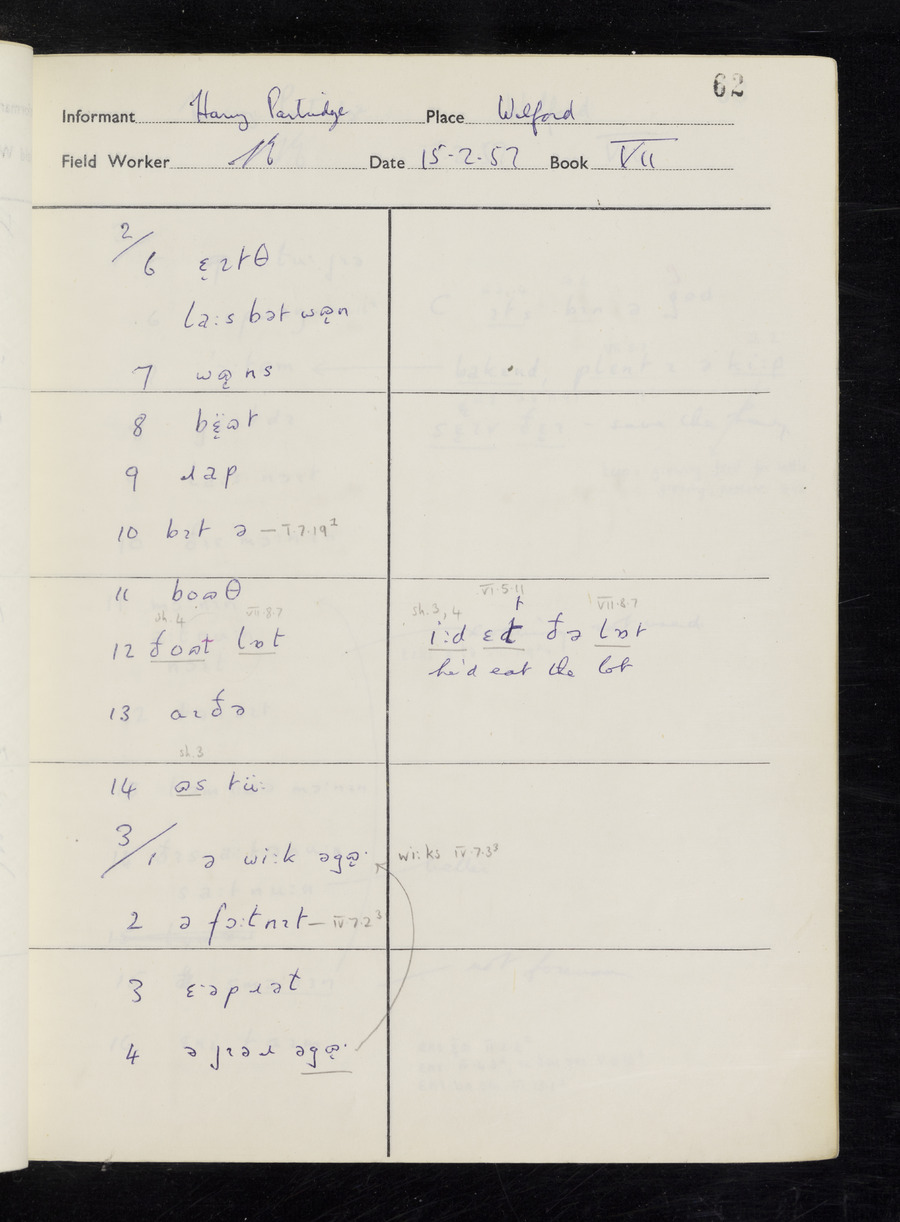 62
Informant Harry Partridge Place Welford
Field Worker Date 15-2-57 Book VII
2/6 ɛ̝ɪtθ
la:s bət wɒ̝n
7 wɒ̝ns
8 bɛ̝̈ɒt
9 ɹap
10 bɪt ə — V.7.19²
11 boɒθ
sh.4 VII.8.7
12 ðoɒt lɒt
sh.3, 4 VI.5.11 VII.8.7
i:d ɛt ðə lɒt
he'd eat the lot
13 aɪðə
sh.3
14 ɒs tü:
3/1 ə wi:k əgɒ̝· wi:ks IV.7.3³
2 ə fɔ:tnɪt — IV.7.2³
3 ɛ·əpɹət
4 ə jɪəɹ əgɒ̝·